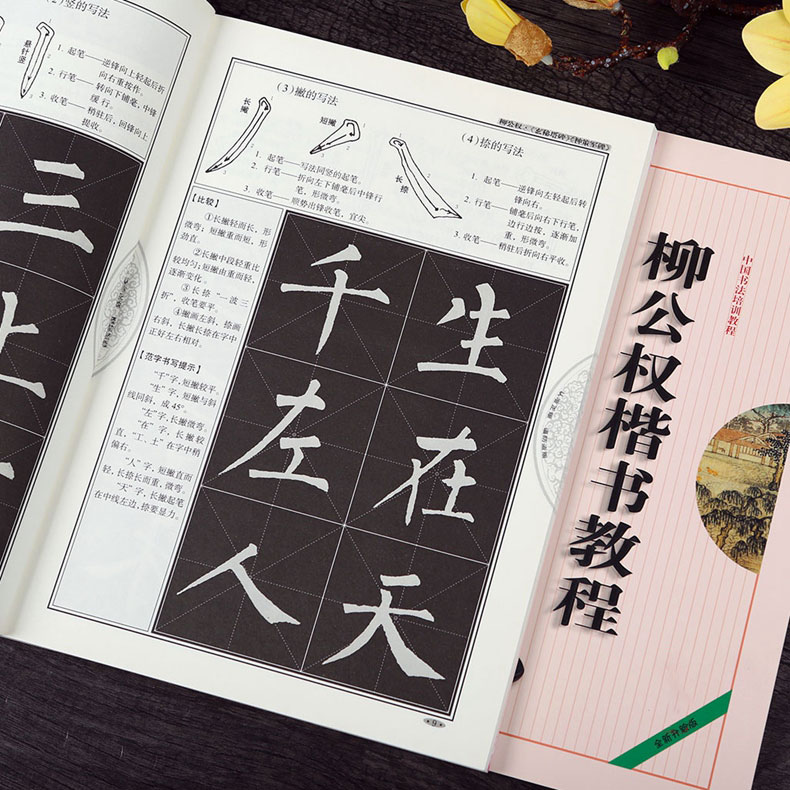 (2)竖的写法
悬针竖
1. 起笔——逆锋向上轻起后折
向右重按作。
2. 行笔——转向下铺毫,中锋
缓行。
3. 收笔——稍驻后,回锋向上
提收。
三
上
柳公权·《玄秘塔碑》《神策军碑》
(3)撇的写法
长撇
短撇
1. 起笔——写法同竖的起笔。
2. 行笔——折向左下铺毫后中锋行
笔,形微弯。
3. 收笔——顺势出锋收笔,宜尖。
(4)捺的写法
长捺
1. 起笔——逆锋向左轻起后转
锋向右。
2. 行笔——铺毫后向右下行笔,
边行边按,逐渐加
重,形微弯。
3. 收笔——稍驻后折向右平收。
【比较】
①长撇轻而长,形
微弯;短撇重而短,形
劲直。
②长撇中段轻重比
较均匀;短撇由重而轻,
逐渐变化。
③长捺“一波三
折”,收笔要平。
④撇画左斜,捺画
右斜,长撇长捺在字中
正好左右相对。
【范字书写提示】
“千”字,短撇较平。
“生”字,短撇与斜
线同斜,成45°。
“左”字,长撇微弯。
“在”字,长撇较
直,“工、土”在字中稍
偏右。
“人”字,短撇直而
轻,长捺长而重,微弯。
“天”字,长撇起笔
在中线左边,捺要显力。
千 生
左 在
人 天
9
中国书法培训教程
柳公权楷书教程
全新升级版